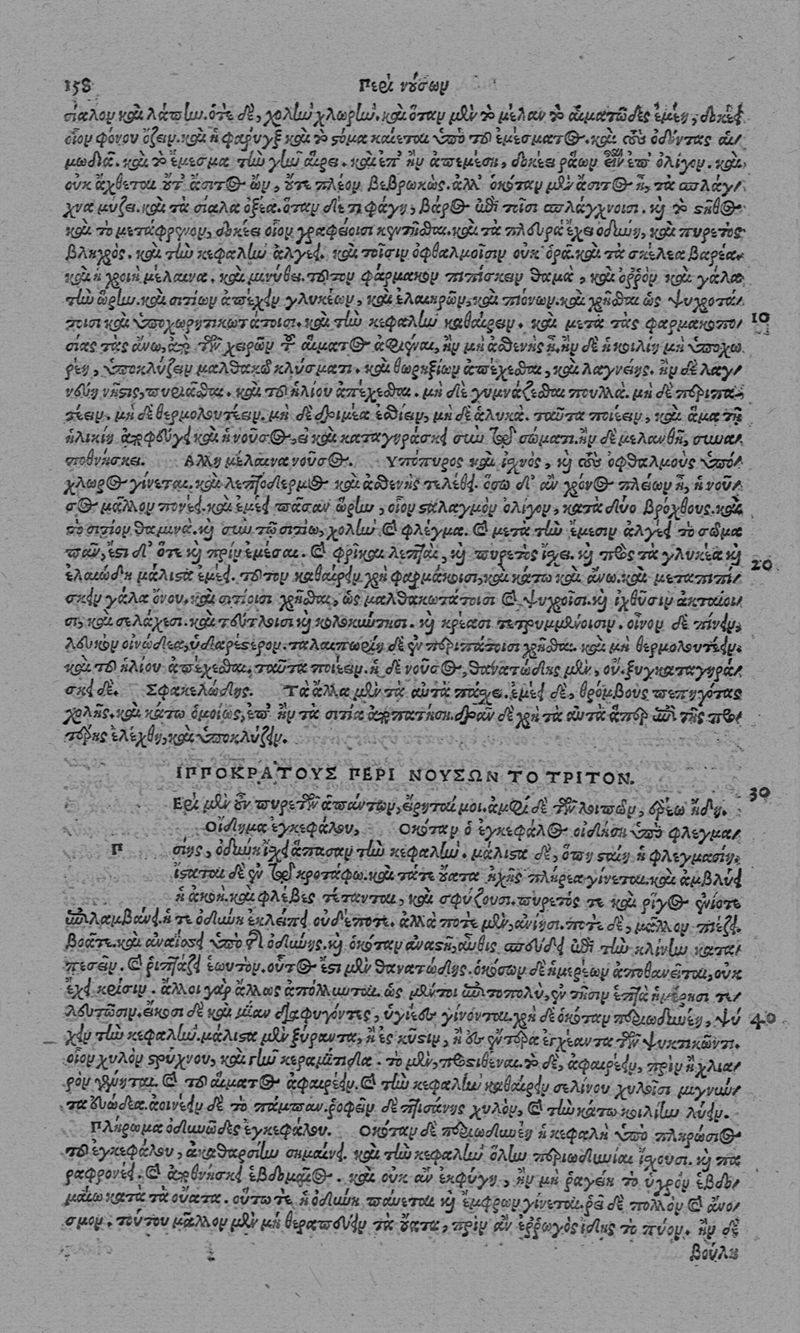 158 Περὶ νούσων
σίαλον καὶ λάπην. ὁτὲ δὲ, χολὴν χλωρὴν. καὶ ὅταν μὲν τὸ μέλαν τὸ αἱματῶδες ἐμέῃ, δοκέει
οἷον φόνου ὄζειν. καὶ ἡ φάρυγξ καὶ τὸ στόμα καίεται ὑπὸ τοῦ ἐμέσματος. καὶ τοὺς ὀδόντας αἱ-
μωδιᾷ. καὶ τὸ ἔμεσμα τὴν γῆν αἴρει. καὶ ἐπ' ἢν ἀπεμέσῃ, δοκέει ῥάων εἶναι ἐπ' ὀλίγον. καὶ
οὐκ ἄχθεται οὔτ' ἄσιτος ὢν, οὔτε πλέον βεβρωκὼς. ἀλλ' ὁκόταν μὲν ἄσιτος ᾖ, τὰ σπλάγ-
χνα μύζει. καὶ τὰ σίαλα ὀξέα. ὅταν δέ τι φάγῃ, βάρος ἐπὶ τοῖσι σπλάγχνοισι. καὶ τὸ στῆθος
καὶ τὸ μετάφρενον, δοκέει οἷον γραφείοισι κεντέεσθαι. καὶ τὰ πλευρὰ ἔχει ὀδύνη, καὶ πυρετὸς
βληχρὸς. καὶ τὴν κεφαλὴν ἀλγέει. καὶ τοῖσιν ὀφθαλμοῖσιν οὐκ ὁρᾷ. καὶ τὰ σκέλεα βαρέα.
καὶ ἡ χροιὴ μέλαινα. καὶ μινύθει. τοῦτον φάρμακον πιπίσκειν θαμὰ, καὶ ὀῤῥὸν καὶ γάλα
τὴν ὥρην. καὶ σιτίων ἀπέχειν γλυκέων, καὶ ἐλαιηρῶν, καὶ πιόνων. καὶ χρῆσθαι ὡς ψυχροτά-
τοισι καὶ ὑποχωρητικωτάτοισι. καὶ τὴν κεφαλὴν καθαίρειν. καὶ μετὰ τὰς φαρμακοπο- 10
σίας τὰς ἄνω, ἀπὸ τῶν χειρῶν τοῦ αἵματος ἀφιέναι, ἢν μὴ ἀσθενὴς ᾖ. ἢν δὲ ἡ κοιλίη μὴ ὑποχω-
ρέῃ, ὑποκλύζειν μαλθακῷ κλύσματι. καὶ θωρηξίων ἀπέχεσθαι, καὶ λαγνείης. ἢν δὲ λαγ-
νεύῃ νῆστις, πυριᾶσθαι. καὶ τοῦ ἡλίου ἀπέχεσθαι. μὴ δὲ γυμνάζεσθαι πουλλὰ. μὴ δὲ περιπα-
τέειν. μὴ δὲ θερμολουτέειν. μὴ δὲ δριμέα ἐσθίειν, μὴ δὲ ἁλυκὰ. ταῦτα ποιέειν, καὶ ἅμα τῇ
ἡλικίῃ ἀποφεύγει καὶ ἡ νοῦσος, εἰ καὶ καταγηράσκει σὺν τῷ σώματι. ἢν δὲ μελανθῇ, συνα-
ποθνήσκει. Ἄλλη μέλαινα νοῦσος. Ὑπόπυρος καὶ ἰσχνὸς, καὶ τοὺς ὀφθαλμοὺς ὑπό-
χλωρος γίνεται. καὶ λεπτόδερμος καὶ ἀσθενὴς τελέθει. ὅσῳ δ' ἂν χρόνος πλείων ᾖ, ἡ νοῦ-
σος μᾶλλον πονέει. καὶ ἐμέει πᾶσαν ὥρην, οἷον σταλαγμὸν ὀλίγον, κατὰ δύο βρόχθους. καὶ
τὸ σιτίον θαμινὰ. καὶ σὺν τῷ σιτίῳ, χολὴν καὶ φλέγμα. καὶ μετὰ τὴν ἔμεσιν ἀλγέει τὸ σῶμα
πᾶν, ἔστι δ' ὅτε καὶ πρὶν ἐμέσαι. καὶ φρῖκαι λεπταὶ, καὶ πυρετὸς ἴσχει. καὶ πρὸς τὰ γλυκέα καὶ 20
ἐλαιώδη μάλιστα ἐμέει. τοῦτον καθαίρειν χρὴ φαρμάκοισι, καὶ κάτω καὶ ἄνω. καὶ μεταπιπί-
σκειν γάλα ὄνου. καὶ σιτίοισι χρῆσθαι, ὡς μαλθακωτάτοισι καὶ ψυχροῖσι. καὶ ἰχθύσιν ἀκταίοι-
σι, καὶ σελάχεσι. καὶ τεύτλοισι καὶ κολοκύντῃσι. καὶ κρέασι τετρυμμένοισιν. οἶνον δὲ πίνειν,
λευκὸν οἰνώδεα, ὑδαρέστερον. ταλαιπωρίῃ δὲ ἐν περιπάτοισι χρῆσθαι. καὶ μὴ θερμολουτέειν.
καὶ τοῦ ἡλίου ἀπέχεσθαι. ταῦτα ποιέειν. ἡ δὲ νοῦσος, θανατώδης μὲν, οὔ. ξυγκαταγηρά-
σκει δὲ. Σφακελώδης. Τὰ ἄλλα μὲν τὰ αὐτὰ πάσχει. ἐμέει δὲ, θρόμβους πεπηγότας
χολῆς. καὶ κάτω ὁμοίως, ἐπ' ἢν τὰ σιτία ἀποπατήσῃ. δρᾶν δὲ χρὴ τὰ αὐτὰ ἅπερ ἐπὶ τῆς προ-
τέρης ἐλέχθη, καὶ ὑποκλύζειν.
ΙΠΠΟΚΡΑΤΟΥΣ ΠΕΡΙ ΝΟΥΣΩΝ ΤΟ ΤΡΙΤΟΝ.
Π Ερὶ μὲν οὖν πυρετῶν ἁπάντων, εἴρηταί μοι. ἀμφὶ δὲ τῶν λοιπῶν, ἐρέω ἤδη. 30
Οἴδημα ἐγκεφάλου. Ὁκόταν ὁ ἐγκέφαλος οἰδήσῃ ὑπὸ φλεγμα-
σίης, ὀδύνη ἴσχει ἅπασαν τὴν κεφαλὴν. μάλιστα δὲ, ὅπη στῇ ἡ φλεγμασίη.
ἵσταται δὲ ἐν τῷ κροτάφῳ. καὶ τά τε οὔατα ἠχῆς πλήρεα γίνεται. καὶ ἀμβλύει
ἡ ἀκοὴ. καὶ φλέβες τέτανται, καὶ σφύζουσι. πυρετὸς τε καὶ ῥῖγος ἐνίοτε
ἐπιλαμβάνει. ἥ τε ὀδύνη ἐκλείπει οὐδέποτε. ἀλλὰ ποτὲ μὲν, ἀνίησι. ποτὲ δὲ, μᾶλλον πιέζει.
βοᾷ τε. καὶ ἀναΐσσει ὑπὸ τῆς ὀδύνης. καὶ ὁκόταν ἀναστῇ, αὖθις σπεύδει ἐπὶ τὴν κλίνην κατα-
πεσεῖν. καὶ ῥιπτάζει ἑωυτὸν. οὗτος ἔστι μὲν θανατώδης. ὁκόσων δὲ ἡμερέων ἀποθανεῖται, οὐκ
ἔχει κρίσιν. ἄλλοι γὰρ ἄλλως ἀπόλλυνται. ὡς μέντοι ἐπιτοπολὺ, ἐν τῇσιν ἑπτὰ ἡμέρῃσι τε-
λευτῶσιν. εἴκοσι δὲ καὶ μίαν διαφυγόντες, ὑγιέες γίνονται. χρὴ δὲ ὁκόταν περιωδυνέῃ, ψύ- 40
χειν τὴν κεφαλὴν. μάλιστα μὲν ξύραντα, ἢ ἐς κύστιν, ἢ ἐς ἔντερα ἐγχέαντα τῶν ψυκτικῶν τι.
οἷον χυλὸν στρύχνου, καὶ γῆν κεραμίτιδα. τὸ μὲν, προστιθέναι. τὸ δὲ, ἀφαιρέειν, πρὶν ἢ χλια-
ρὸν γένηται. καὶ τοῦ αἵματος ἀφαιρέειν. καὶ τὴν κεφαλὴν καθαίρειν σελίνου χυλοῖσι μιγνύν-
τα εὐώδεα. ἀοινέειν δὲ τὸ πάμπαν. ῥοφεῖν δὲ πτισάνης χυλὸν, καὶ τὴν κάτω κοιλίην λύειν.
Πλήρωμα ὀδυνῶδες ἐγκεφάλου. Ὁκόταν δὲ περιωδυνέῃ ἡ κεφαλὴ ὑπὸ πληρώσιος
τοῦ ἐγκεφάλου, ἀκαθαρσίην σημαίνει. καὶ τὴν κεφαλὴν ὅλην περιωδυνίαι ἴσχουσι. καὶ πα-
ραφρονέει. καὶ ἀποθνήσκει ἑβδομαῖος. καὶ οὐκ ἂν ἐκφύγῃ, ἢν μὴ ῥαγείη τὸ ὑγρὸν ἑβδο-
μαίῳ κατὰ τὰ οὔατα. οὕτω τε ἡ ὀδύνη παύεται καὶ ἔμφρων γίνεται. ῥεῖ δὲ πολλὸν καὶ ἄνο-
σμον. τούτου μᾶλλον μὲν μὴ θεραπεύειν τὰ οὔατα, πρὶν ἂν ἐῤῥωγὸς ἴδῃς τὸ πύον. ἢν δὲ
βούλῃ